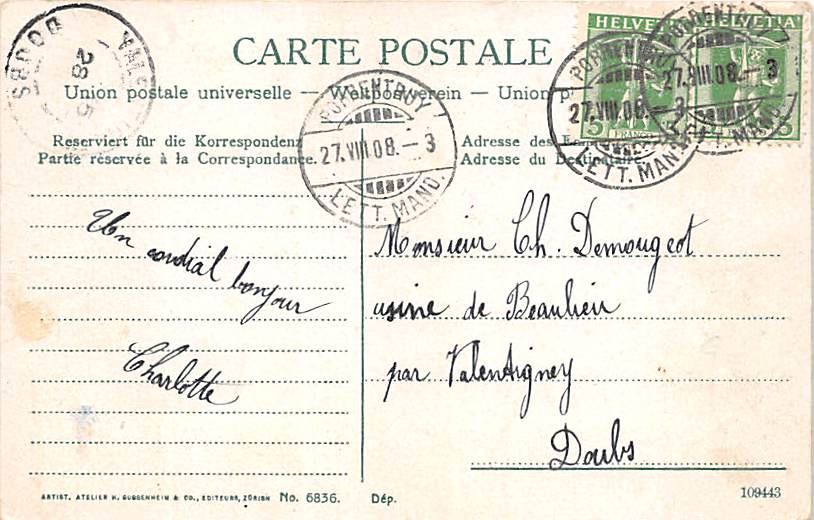 CARTE POSTALE
Union postale universelle — Weltpostverein — Union p
Reserviert für die Korrespondenz
Partie réservée à la Correspondance.
Adresse des
Adresse du Destinataire
HELVETIA
HELVETIA
5
FRANCO
5
PORRENTRUY
27.VIII.08.-3
LETT. MAND.
PORRENTRUY
27.VIII.08.-3
LETT. MAND.
PORRENTRUY
27.VIII.08.-3
LETT. MAND.
DOUBS
28
Un cordial bonjour
Charlotte
Monsieur Ch. Demougeot
usine de Beaulieu
par Valentigney
Doubs
ARTIST. ATELIER H. GUGGENHEIM & CO., EDITEURS, ZÜRICH No. 6836. Dép.
109443